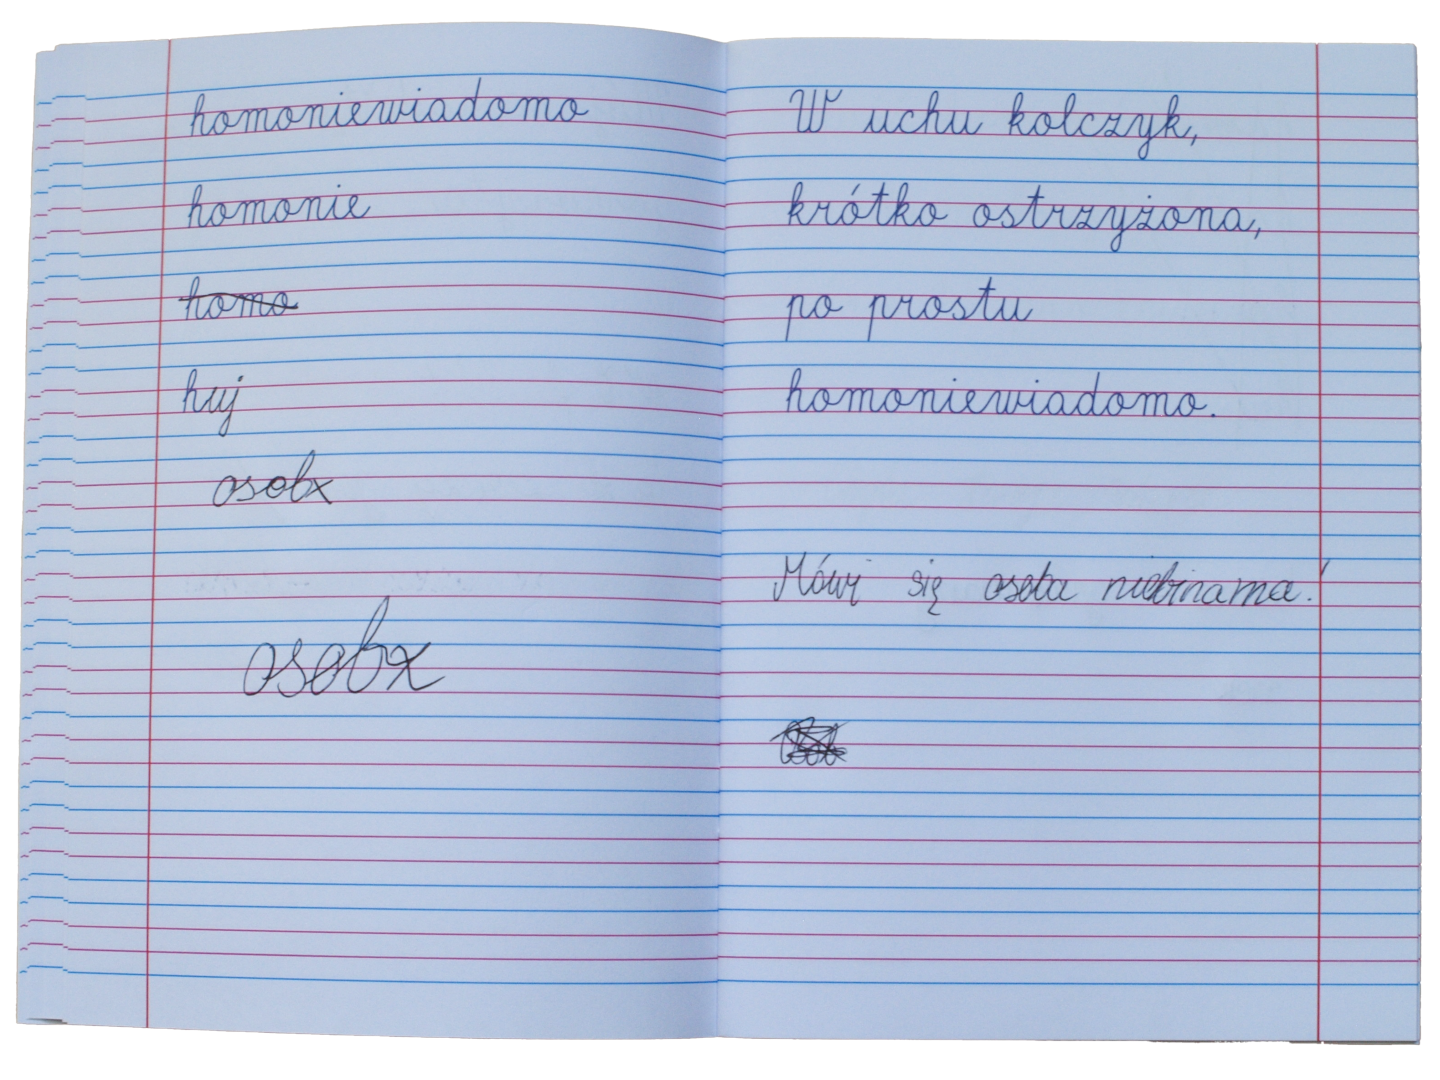 homoniewiadomo
homonie
homo
huj
osobx
osobx
W uchu kolczyk,
krótko ostrzyżona,
po prostu
homoniewiadomo.
Mówi się osoba niebinarna!